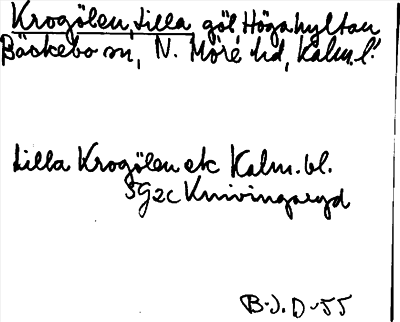 Krogölen, Lilla göl Högahyltan
Bäckebo sn, N. Möre hd, Kalm.l.
Lilla Krogölen ek Kalm.bl.
5G2c Knivingaryd
B.J.D-55